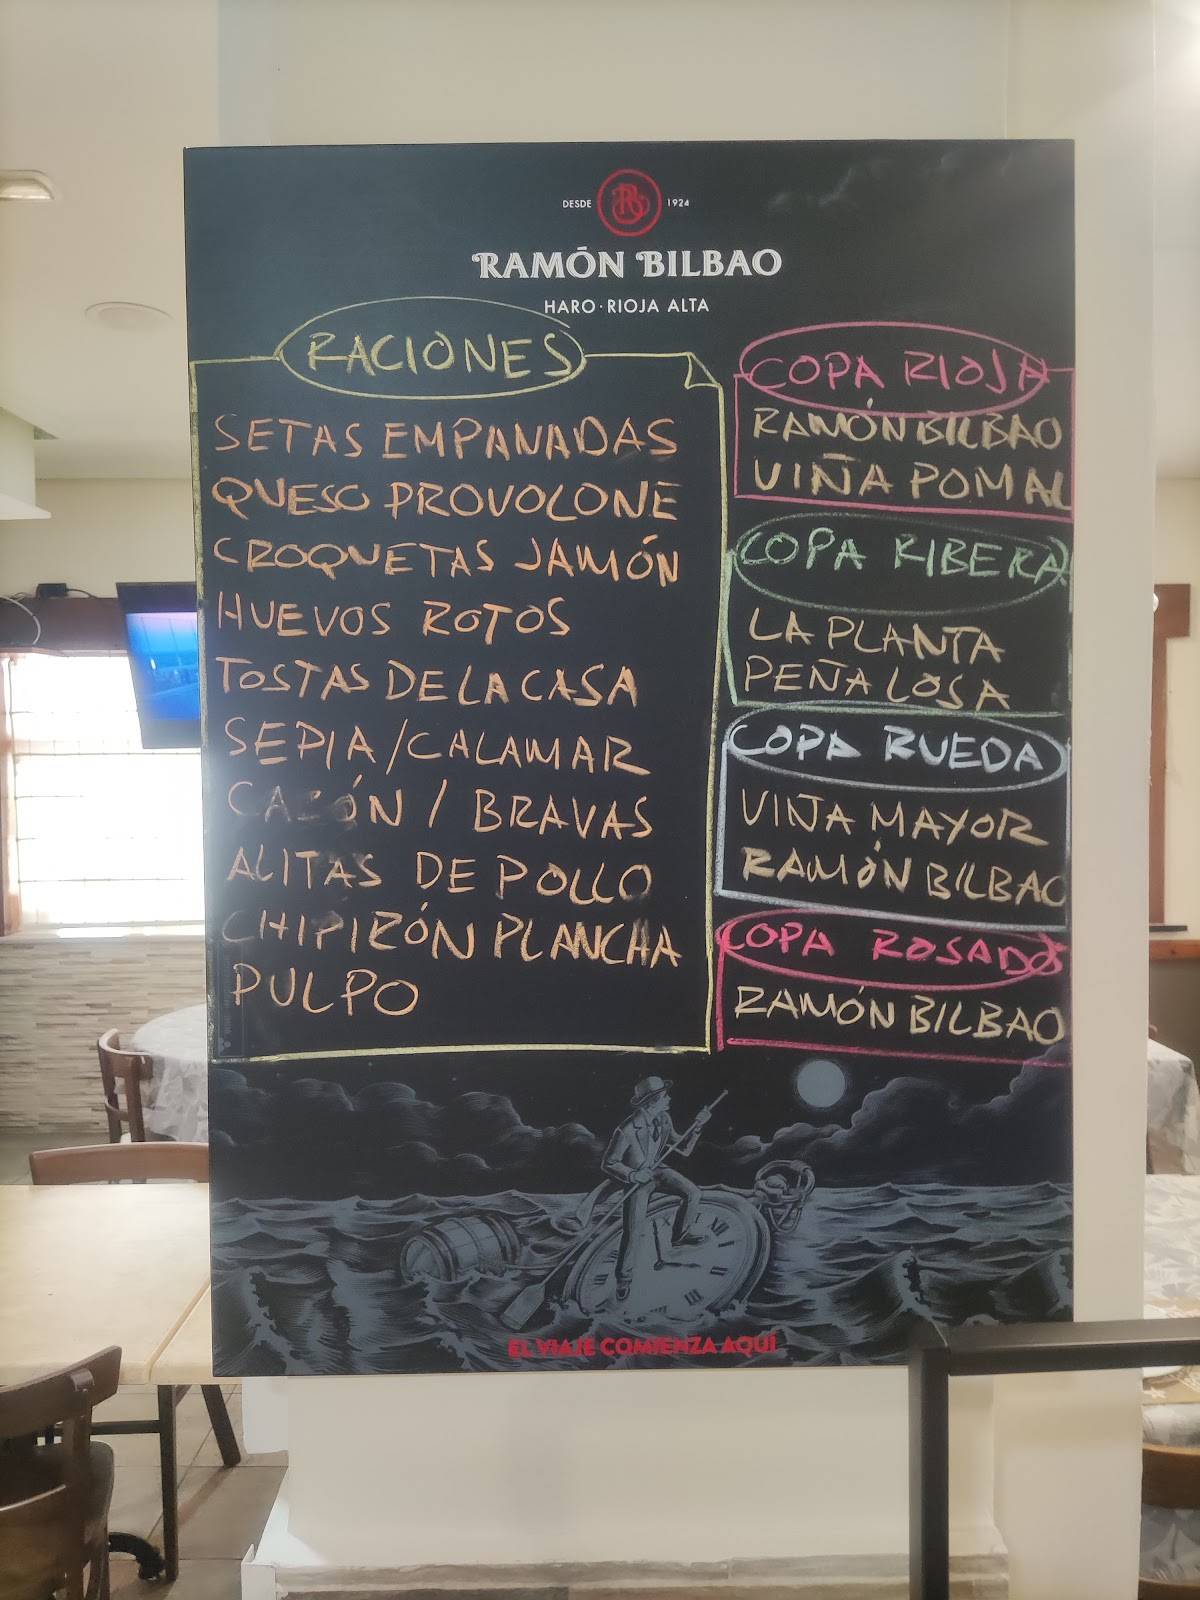 DESDE 1924
RAMÓN BILBAO
HARO · RIOJA ALTA
RACIONES
SETAS EMPANADAS
QUESO PROVOLONE
CROQUETAS JAMÓN
HUEVOS ROTOS
TOSTAS DE LA CASA
SEPIA / CALAMAR
CAZÓN / BRAVAS
ALITAS DE POLLO
CHIPIRÓN PLANCHA
PULPO
COPA RIOJA
RAMÓN BILBAO
VIÑA POMAL
COPA RIBERA
LA PLANTA
PEÑALOSA
COPA RUEDA
VIÑA MAYOR
RAMÓN BILBAO
COPA ROSADO
RAMÓN BILBAO
EL VIAJE COMIENZA AQUÍ